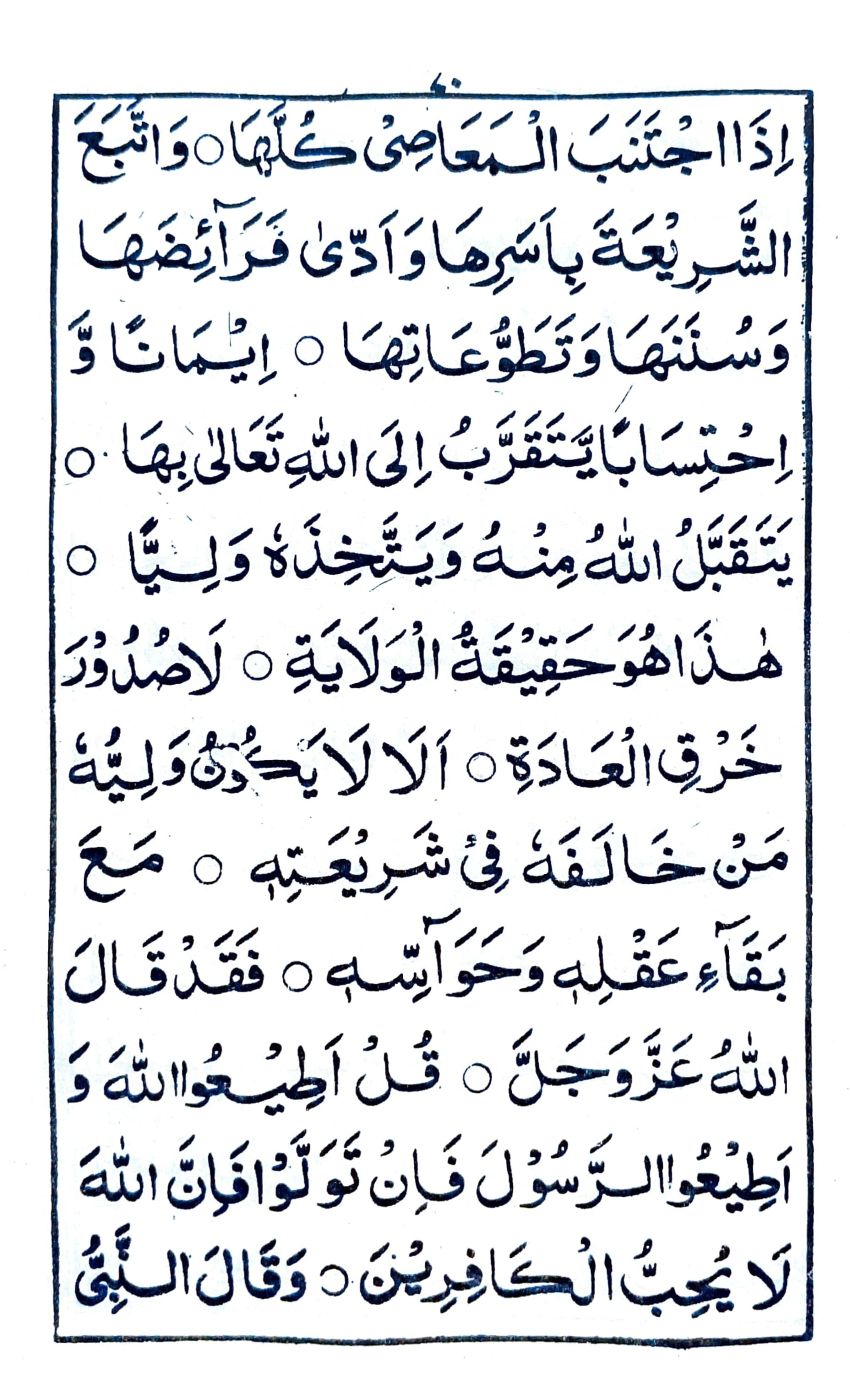 اِذَا اجْتَنَبَ الْمَعَاصِیْ كُلَّهَا○ وَاتَّبَعَ
الشَّرِیْعَةَ بِاَسَرِهَا وَاَدّٰی فَرَآئِضَهَا
وَسُنَنَهَا وَتَطَوُّعَاتِهَا ○ اِیْمَانًا وَّ
اِحْتِسَابًا یَّتَقَرَّبُ اِلَی اللّٰهِ تَعَالٰی بِهَا ○
یَتَقَبَّلُ اللّٰهُ مِنْهُ وَیَتَّخِذَهٗ وَلِیًّا ○
هٰذَا هُوَ حَقِیْقَةُ الْوَلَایَةِ ○ لَاصُدُوْرَ
خَرْقِ الْعَادَةِ ○ اَلَا لَا یَكُوْنُ وَلِیُّهٗ
مَنْ خَالَفَهٗ فِیْ شَرِیْعَتِهٖ ○ مَعَ
بَقَآءِ عَقْلِهٖ وَحَوَآسِّهٖ ○ فَقَدْ قَالَ
اللّٰهُ عَزَّوَجَلَّ ○ قُلْ اَطِیْعُوا اللّٰهَ وَ
اَطِیْعُوا الرَّسُوْلَ فَاِنْ تَوَلَّوْا فَاِنَّ اللّٰهَ
لَا یُحِبُّ الْكَافِرِیْنَ ○ وَقَالَ النَّبِیُّ